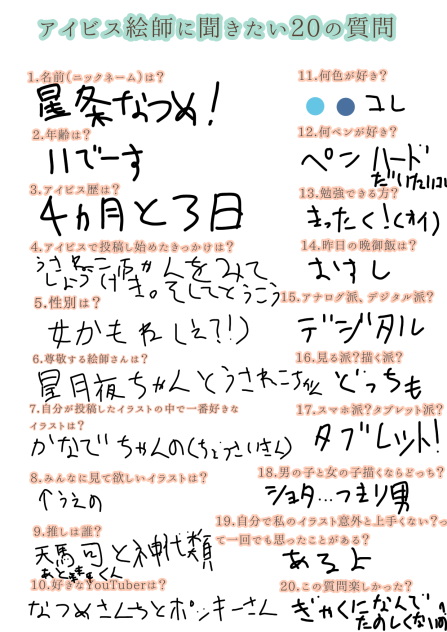 アイビス絵師に聞きたい20の質問
1.名前(ニックネーム)は?
星条なつめ!
2.年齢は?
11でーす
3.アイビス歴は?
4ヵ月と3日
4.アイビスで投稿し始めたきっかけは?
うさねこ
んをみて
しょうげき。そしてとうこう
5.性別は?
女かもねしえ?!)
6.尊敬する絵師さんは?
星月夜ちゃんとうさねこちゃん
7.自分が投稿したイラストの中で一番好きな
イラストは?
かなでちゃんの(ちょうさいさん)
8.みんなに見て欲しいイラストは?
↑うえの
9.推しは誰?
天馬司と神代類
あと
くん
10.好きなYouTuberは?
なつめさんちとポッキーさん
11.何色が好き?
コレ
12.何ペンが好き?
ペンハード
だいたいは
13.勉強できる方?
まったく!(オイ)
14.昨日の晩御飯は?
おすし
15.アナログ派、デジタル派?
デジタル
16.見る派?描く派?
どっちも
17.スマホ派?タブレット派?
タブレット!
18.男の子と女の子描くならどっち?
ショタ…つまり男
19.自分で私のイラスト意外と上手くない?っ
て一回でも思ったことがある?
あるよ
20.この質問楽しかった?
ぎゃくになんで
たのしくないの?